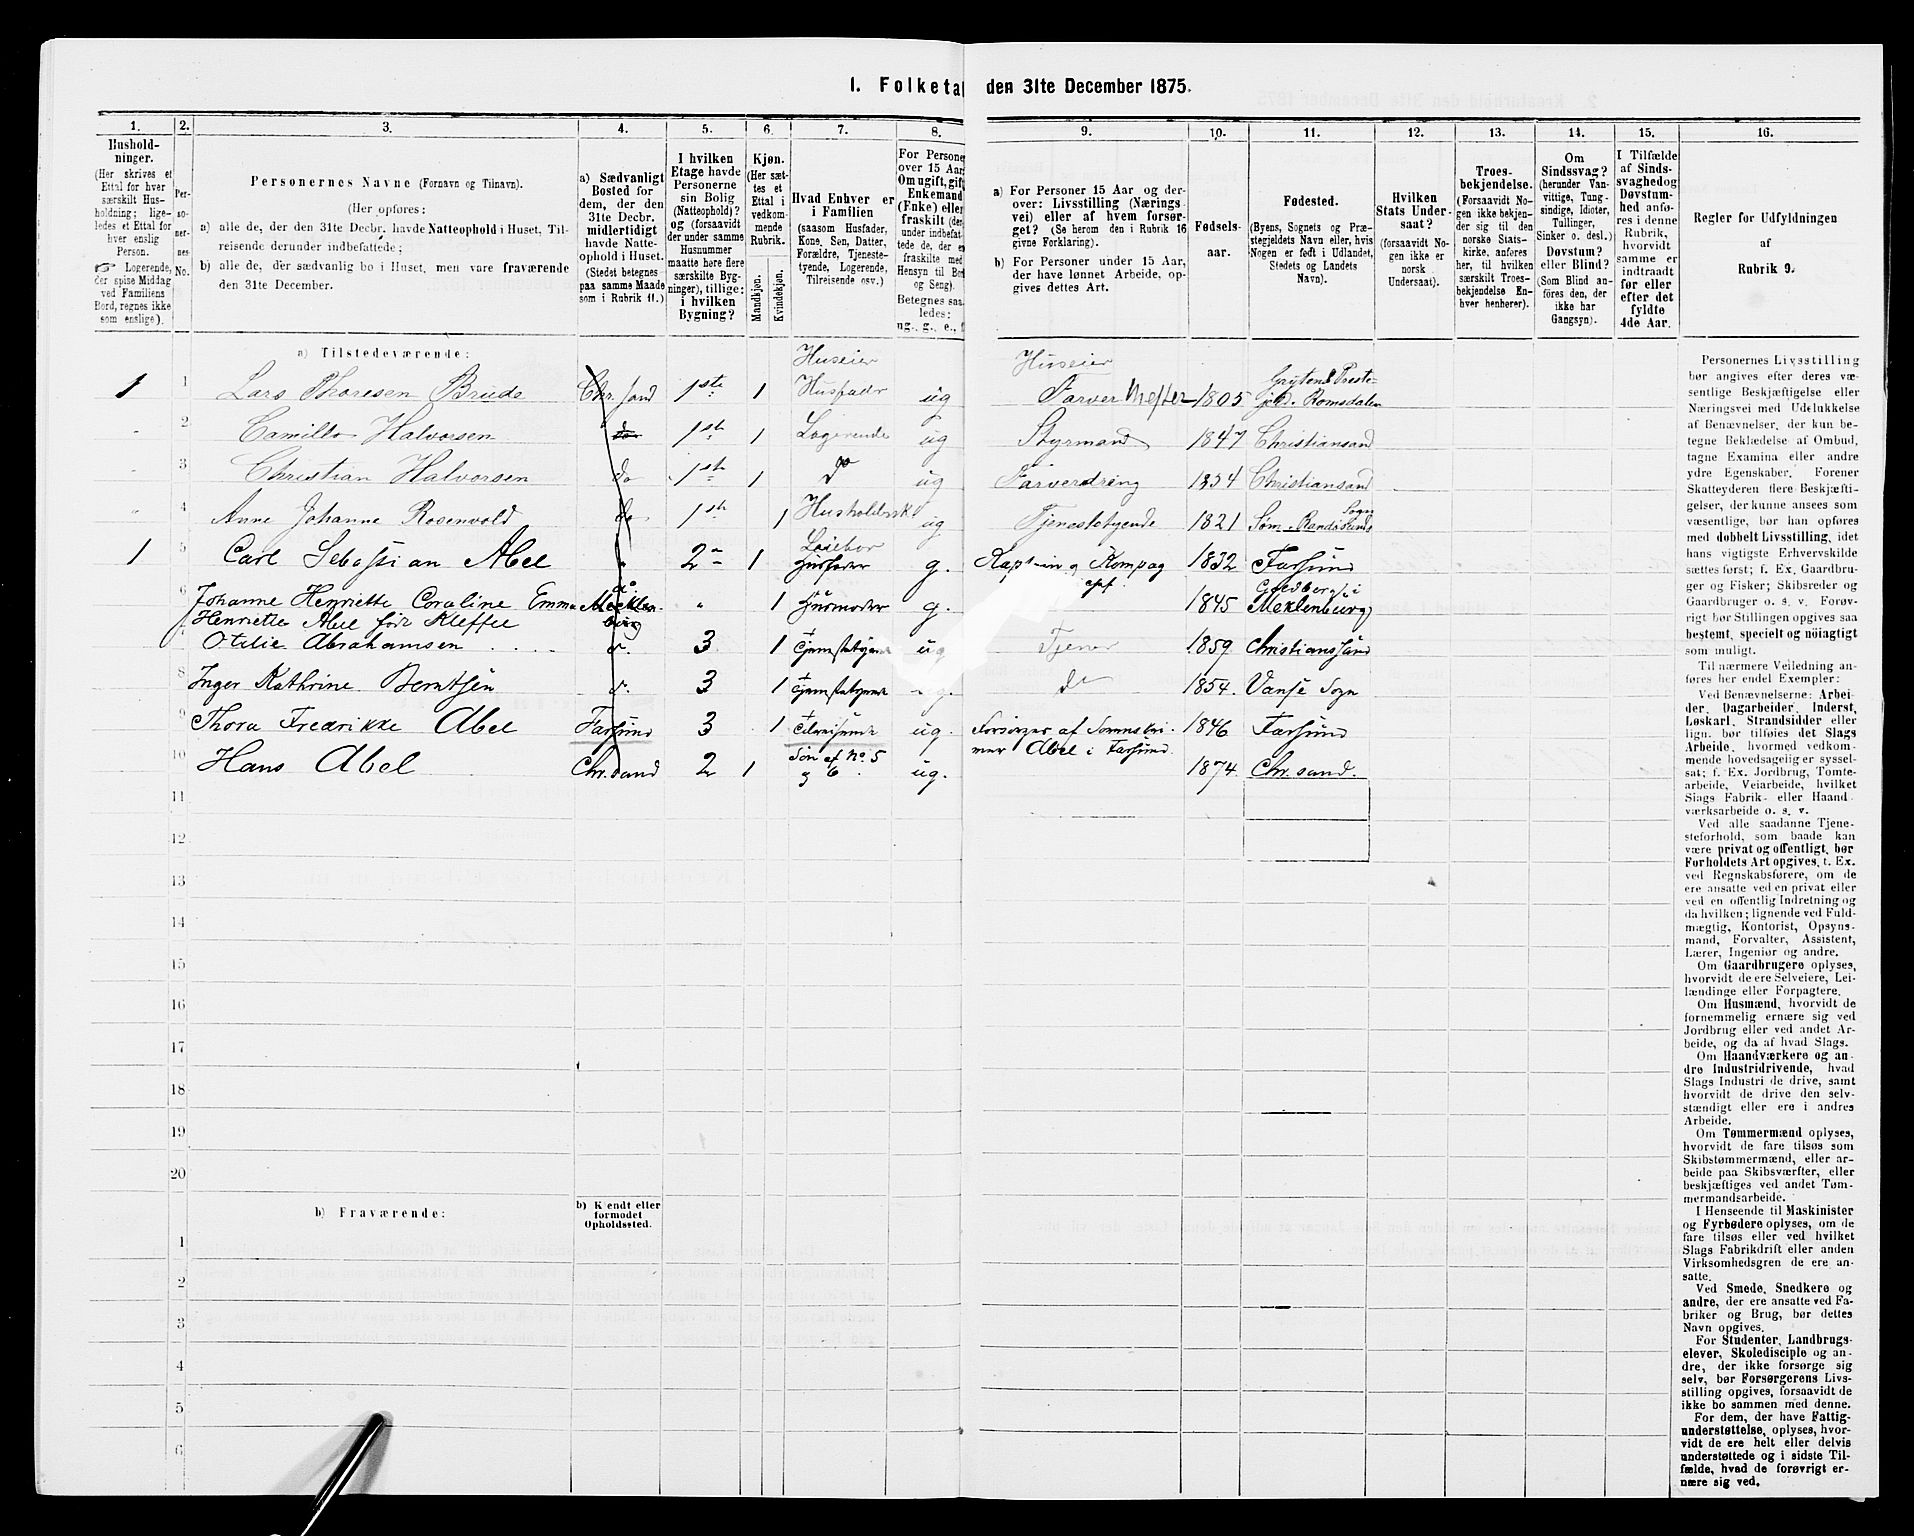 1. Folketal den 31te December 1875.
1. 2. 3. 4. 5. 6. 7. 8. 9. 10. 11. 12. 13. 14. 15. 16.
Hushold-
ninger.
(Her skrives et
Ettal for hver
særskilt Hus-
holdning; lige-
ledes et Ettal for
hver enslig
Person.
☞ Logerende,
der spise Middag
ved Familiens
Bord, regnes ikke
som enslige).
Per-
so-
ner-
nes
No.
Personernes Navne (Fornavn og Tilnavn).
(Her opføres:
a) alle de, der den 31te Decbr. havde Natteophold i Huset, Til-
reisende derunder indbefattede;
b) alle de, der sædvanlig bo i Huset, men vare fraværende
den 31te December.
a) Sædvanligt
Bosted for
dem, der den
31te Decbr.
midlertidigt
havde Natte-
ophold i Huset.
(Stedet betegnes
paa samme Maade
som i Rubrik 11.)
I hvilken
Etage havde
Personerne
sin Bolig
(Natteophold)?
og (forsaavidt
der under samme
Husnummer
maatte høre flere
særskilte Byg-
ninger), tillige:
i hvilken
Bygning?
Kjøn.
(Her sæt-
tes et
Ettal i
vedkom-
mende
Rubrik.
Mandkjøn.
Kvindekjøn.
Hvad Enhver er
i Familien
(saasom Husfader,
Kone, Søn, Datter,
Forældre, Tjeneste-
tyende, Logerende,
Tilreisende osv.)
For Persone
over 15 Aar
Om ugift, gift
Enkemand
(Enke) eller
fraskilt (der
under indbefat-
tede de, der e
fraskilte med
Hensyn til Bo
og Seng).
Betegnes saa
ledes:
ug., g., e., f
a) For Personer 15 Aar og der-
over: Livsstilling (Nærings-
vei) eller af hvem forsør-
get? (Se herom den i Rubrik 16
givne Forklaring).
b) For Personer under 15 Aar,
der have lønnet Arbeide, op-
gives dettes Art.
Fødsels-
aar.
Fødested.
(Byens, Sognets og Præ-
stegjeldets Navn eller, hvis
Nogen er født i Udlandet,
Stedets og Landets
Navn).
Hvilken
Stats Under-
saat?
(forsaavidt No-
gen ikke er
norsk
Undersaat).
Troes-
bekjendelse.
(Forsaavidt No-
gen ikke bekjen-
der sig til den
norske Stats-
kirke, anføres
her, til hvilken
særskilt Troes-
bekjendelse En-
hver henhører).
Om
Sindssvag?
(herunder Van-
vittige, Tung-
sindige, Idioter,
Tullinger,
Sinker o. desl.)
Døvstum?
eller Blind?
(Som Blind an-
føres den, der
ikke har
Gangsyn).
I Tilfælde
af Sinds-
svaghed og
Døvstum-
hed anfø-
res i denne
Rubrik,
hvorvidt
samme er
indtraadt
før eller
efter det
fyldte
4de Aar.
Regler for Udfyldningen
af
Rubrik 9.
a) Tilstedeværende:
1 1 Lars Thoresen Brude Chr.sand 1ste 1 Huseier Husfader ug Huseier Farver 1805 Grytens Præste- gjeld. Romsdalen
2 Camillo Halvorsen do 1st 1 Logerende ug Styrmand 1847 Christiansand
3 Christian Halvorsen do 1ste 1 do ug Farverdreng 1854 Christiansand
4 Anne Johanne Rosenvold do 1st 1 ug Tjenestetyende 1821 Søm. Randøsunds Sogn
1 5 Carl Sebastian Abel " 2 1 Leiebor Husfader g. Kaptein og Kompag chef. 1832 Farsund
6 Johanne Henriette Coraline Emma Mecklen- burg " 1 Husmoder g. 1845 Goldberg i Meklenburg
Henriette Abel født Kleffel
7 Otilie Abrahamsen d. 3 1 Tjenestetyende ug Tjener 1859 Christianssand
8 Inger Kathrine Berntsen d. 3 1 Tjenestetyende ug. do 1854. Vanse Sogn
9 Thora Fredrikke Abel Farsund 3 1 Tilreisende ug. Forsørges af Sorenskri- wer Abel i Farsund. 1846 Farsund
10 Hans Abel Chr.sand 2 1 Søn af No. 5 og 6. ug. 1874 Chr.sand.
11
12
13
14
15
16
17
18
19
20
b) Fraværende:
b) Kjendt eller
formodet
Opholdssted.
1
2
3
4
5
6
Personernes Livsstilling
bør angives efter deres væ-
sentlige Beskjæftigelse eller
Næringsvei med Udelukkelse
af Benævnelser, der kun be-
tegne Beklædelse af Ombud,
tagne Examina eller andre
ydre Egenskaber. Forener
Skatteyderen flere Beskjæfti-
gelser, der kunne ansees som
væsentlige, bør han opføres
med dobbelt Livsstilling, idet
hans vigtigste Erhvervskilde
sættes først; f. Ex. Gaardbru-
ger og Fisker; Skibsreder og
Gaardbruger o. s. v. Forøv-
rigt bør Stillingen opgives saa
bestemt, specielt og nøiagtigt
som muligt.
Til nærmere Veiledning an-
føres her endel Exempler:
Ved Benævnelserne: Arbei-
der, Dagarbeider, Inderst,
Løskarl, Strandsidder eller
lign. bør tilføies det Slags
Arbeide, hvormed vedkom-
mende hovedsagelig er syssel-
sat; f. Ex. Jordbrug, Tomte-
arbeide, Veiarbeide, hvilket
Slags Fabrik- eller Haand-
værksarbeide o. s. v.
Ved alle saadanne Tjene-
steforhold, som baade kan
være privat og offentligt, bør
Forholdets Art opgives, t. Ex.
ved Regnskabsførere, om de
ere ansatte ved en privat eller
ved en offentlig Indretning og
da hvilken; lignende ved Fuld-
mægtig, Kontorist, Opsyns-
mand, Forvalter, Assistent,
Lærer, Ingeniør og andre.
Om Gaardbrugere oplyses,
hvorvidt de ere Selveiere, Lei-
lændinge eller Forpagtere.
Om Husmænd, hvorvidt de
fornemmelig ernære sig ved
Jordbrug eller ved andet Ar-
beide, og da af hvad Slags.
Om Haandværkere og an-
dre Industridrivende, hvad
Slags Industri de drive, samt
hvorvidt de drive den selv-
stændigt eller ere i andres
Arbeide.
Om Tømmermænd oplyses,
hvorvidt de fare tilsøs som
Skibstømmermænd, eller ar-
beide paa Skibsværfter, eller
beskjæftiges ved andet Tøm-
mermandsarbeide.
I Henseende til Maskinister
og Fyrbødere oplyses, om de
fare tilsøs eller ved hvilket
Slags Fabrikdrift eller anden
Virksomhedsgren de ere an-
satte.
Ved Smede, Snedkere og
andre, der ere ansatte ved Fa-
briker og Brug, bør dettes
Navn opgives.
For Studenter, Landbrugs-
elever, Skoledisciple og an-
dre, der ikke forsørge sig
selv, bør Forsørgerens Livs-
stilling opgives, forsaavidt de
ikke bo sammen med denne.
For dem, der have Fattig-
understøttelse, oplyses, hvor-
vidt de ere helt eller delvis
understøttede og i sidste Til-
fælde, hvad de forøvrigt er-
nære sig ved.